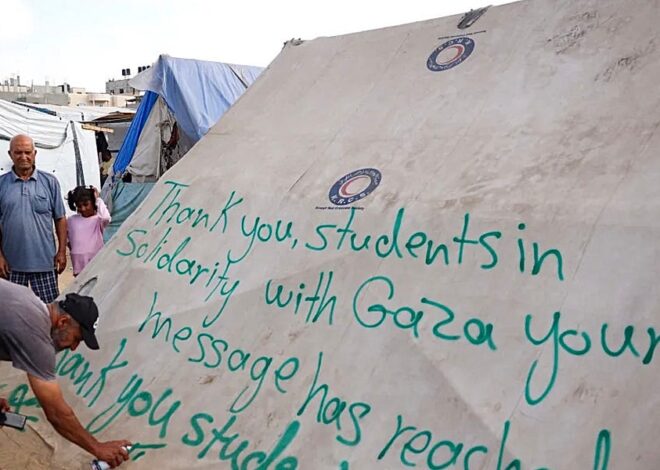 Thank you, students in
Solidarity with Gaza your
message has reached
Thank you students